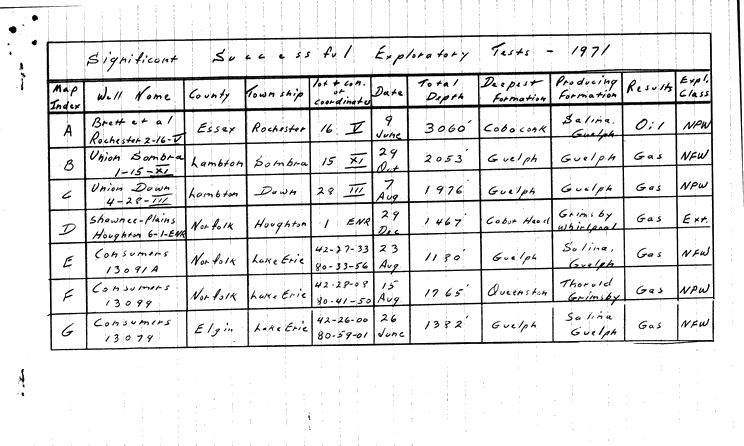 Significant Successful Exploratory Tests - 1971
Map Index | Well Name | County | Township | lot + con. or coordinates | Date | Total Depth | Deepest Formation | Producing Formation | Results | Expl. Class
A | Brett et al Rochester 2-16-V | Essex | Rochester | 16 V | 9 June | 3060' | Coboconk | Salina, Guelph | Oil | NPW
B | Union Sombra 1-15-XI | Lambton | Sombra | 15 XI | 29 Oct | 2053' | Guelph | Guelph | Gas | NFW
C | Union Dawn 4-28-III | Lambton | Dawn | 28 III | 7 Aug | 1976' | Guelph | Guelph | Gas | NPW
D | Shawnee-Plains Houghton 6-1-ENR | Norfolk | Houghton | 1 ENR | 29 Dec | 1467' | Cabot Head | Grimsby Whirlpool | Gas | Ext.
E | Consumers 13091A | Norfolk | Lake Erie | 42-37-33 80-33-56 | 23 Aug | 1180' | Guelph | Salina, Guelph | Gas | NFW
F | Consumers 13099 | Norfolk | Lake Erie | 42-28-08 80-41-50 | 15 Aug | 1765' | Queenston | Thorold Grimsby | Gas | NPW
G | Consumers 13079 | Elgin | Lake Erie | 42-26-00 80-59-01 | 26 June | 1382' | Guelph | Salina Guelph | Gas | NFW